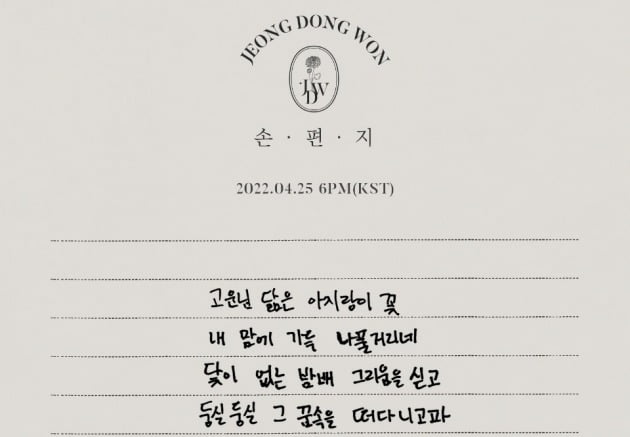 JEONG DONG WON
JDW
손 · 편 · 지
2022.04.25 6PM(KST)
고운님 닮은 아지랑이 꽃
내 맘에 가득 나풀거리네
닻이 없는 밤배 그리움을 싣고
둥실둥실 그 꿈속을 떠다니고파